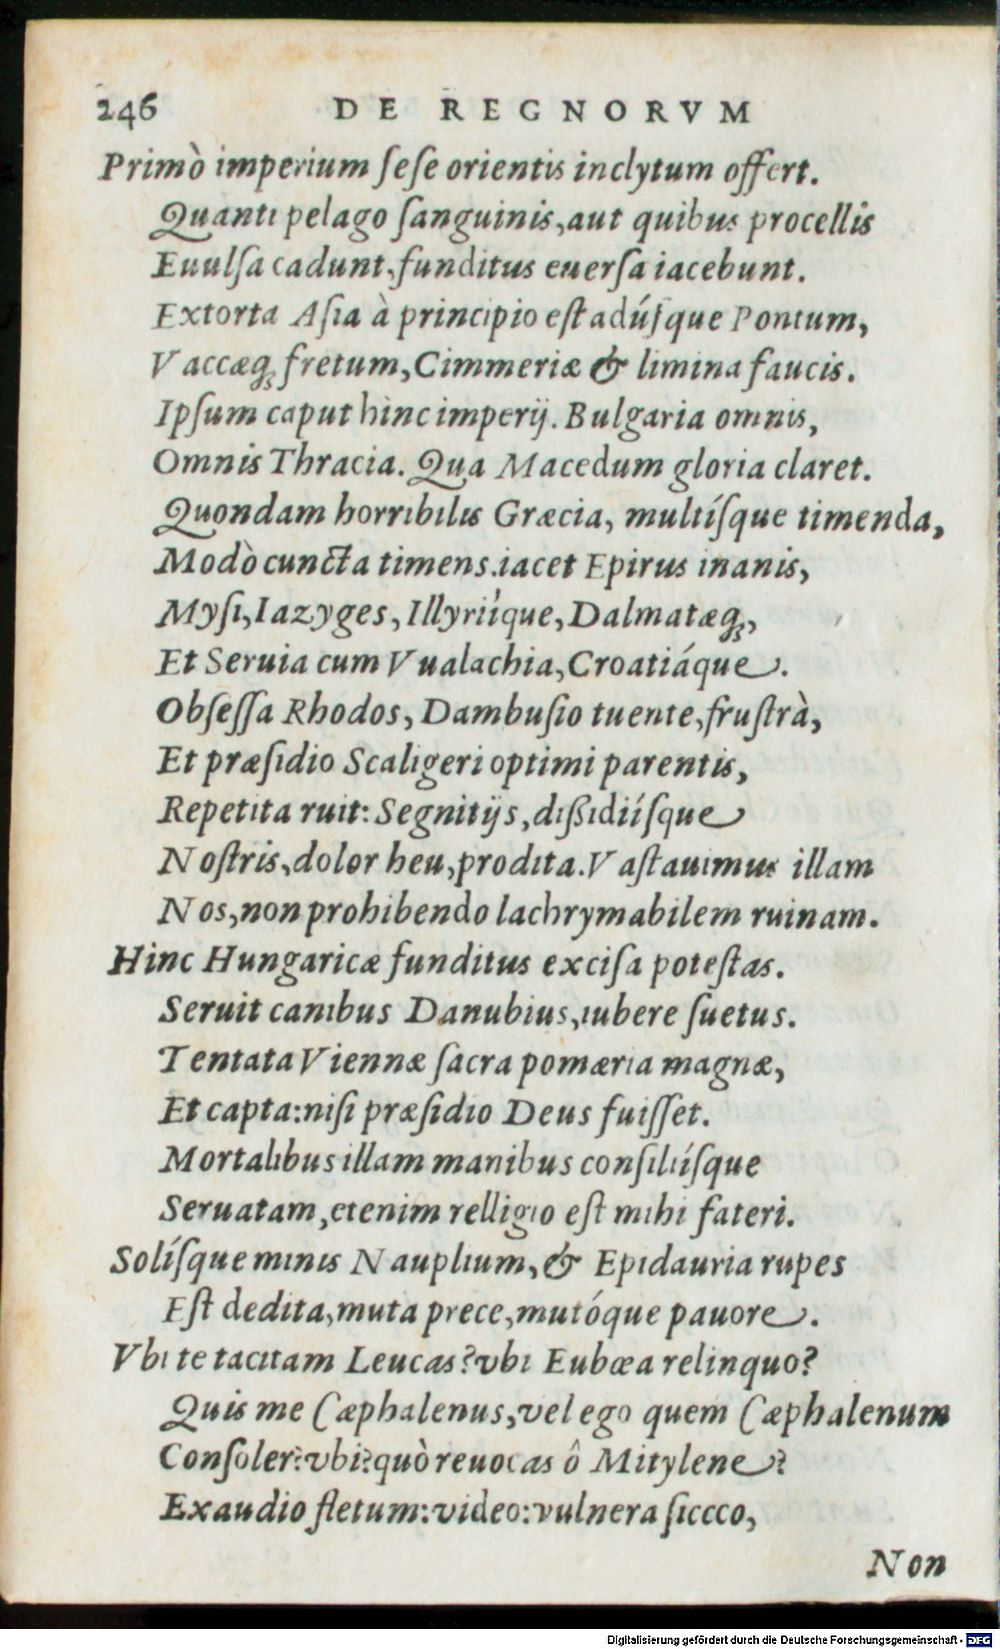 246 DE REGNORVM
Primò imperium ſeſe orientis inclytum offert.
Quanti pelago ſanguinis,aut quibus procellis
Euulſa cadunt,funditus euerſa iacebunt.
Extorta Aſia à principio eſt adúſque Pontum,
Vaccæq; fretum,Cimmeriæ & limina faucis.
Ipſum caput hinc imperij. Bulgaria omnis,
Omnis Thracia. Qua Macedum gloria claret.
Quondam horribilis Græcia, multíſque timenda,
Modò cuncta timens.iacet Epirus inanis,
Myſi,Iazyges,Illyriíque,Dalmatæq;,
Et Seruia cum Vualachia,Croatiáque.
Obſeſſa Rhodos, Dambuſio tuente,fruſtrà,
Et præſidio Scaligeri optimi parentis,
Repetita ruit: Segnitijs,dißidiíſque
Noſtris,dolor heu,prodita.Vaſtauimus illam
Nos,non prohibendo lachrymabilem ruinam.
Hinc Hungaricæ funditus exciſa poteſtas.
Seruit canibus Danubius,iubere ſuetus.
Tentata Viennæ ſacra pomæria magnæ,
Et capta:niſi præſidio Deus fuiſſet.
Mortalibus illam manibus conſiliíſque
Seruatam,etenim relligio eſt mihi fateri.
Solíſque minis Nauplium,& Epidauria rupes
Eſt dedita,muta prece,mutóque pauore.
Vbi te tacitam Leucas?vbi Eubœa relinquo?
Quis me Cæphalenus,vel ego quem Cæphalenum
Conſoler?vbi?quò reuocas ô Mitylene?
Exaudio fletum:video:vulnera ſiccco,
Non
Digitalisierung gefördert durch die Deutsche Forschungsgemeinschaft - DFG